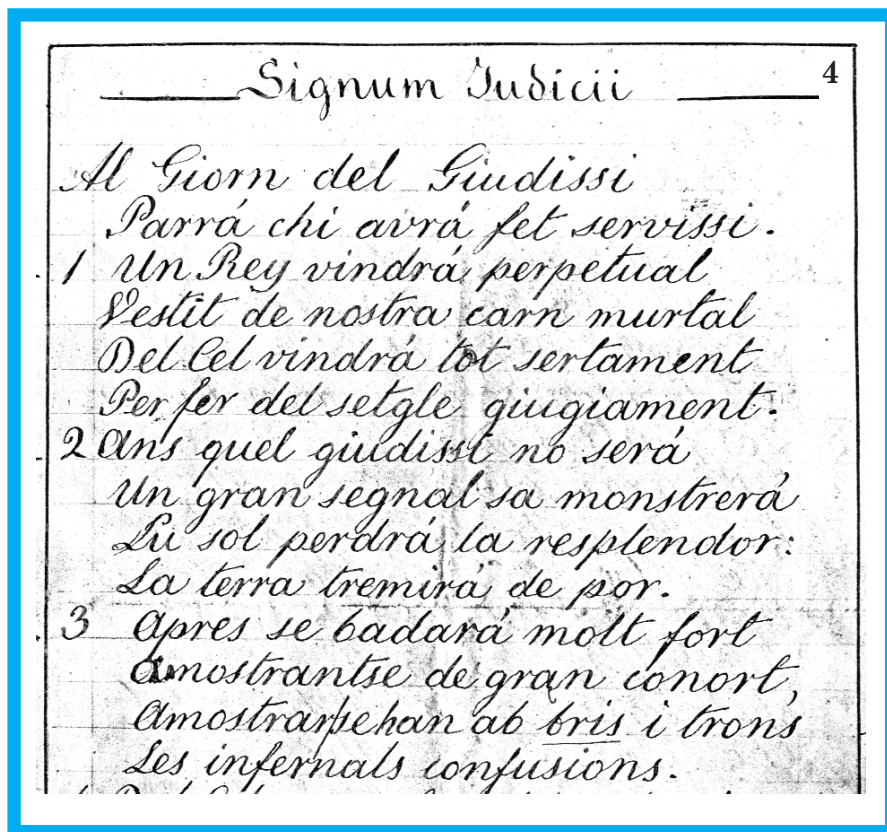 Signum Iudicii 4
Al Giorn del Giudissi
Parrá chi avrá fet servissi.
1 Un Rey vindrá perpetual
Vestit de nostra carn murtal
Del Cel vindrá tot sertament
Per fer del setgle giugiament.
2 Ans quel giudissi no será
Un gran segnal sa monstrerá
Lu sol perdrá la resplendor:
La terra tremirá de por.
3 Apres se badará molt fort
Amostrantse de gran conort,
Amostrarsehan ab bris i trons
Les infernals confusions.